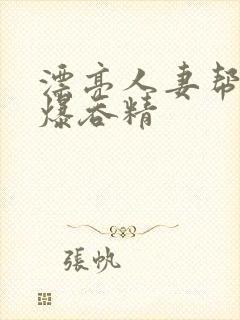 漂亮人妻帮
爆吞精
張帆